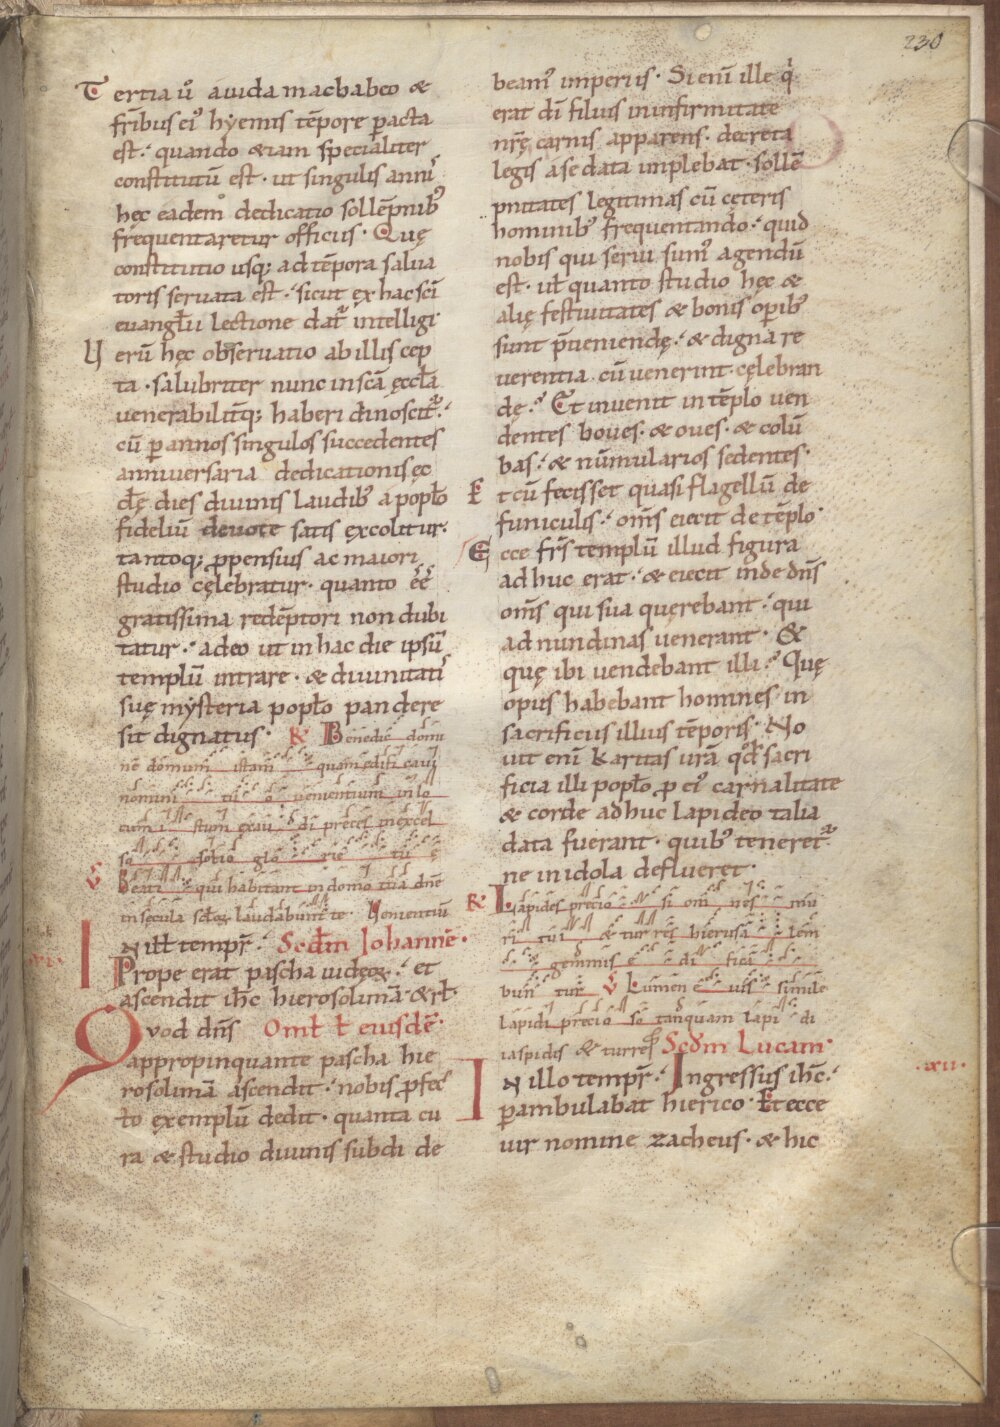 230
Tertia ů aiuda machabeo &
fr̄ibus ei᷒ hyemis tēpore ꝑacta
est. quando &iam specialiter
constitutū est · ut singulis anni᷒
hęc eadem dedicatio sollēpnib᷒
frequentaretur officiis · Quę
constitutio usq; ad tēpora salua
toris seruata est · sicut ex hac sc̄i
euangl̄ii lectione dat᷑ intelligi·
Uerū hęc obseruatio ab illis cep
ta · salubriter nunc in scā ęccl̄a
uenerabilit̄q; haberi dinoscit᷑·
cū ꝑ annos singulos succedentes
anniuersaria dedicationis ęc
cl̄ę dies diuinis laudib᷒ a popl̄o
fideliū deuote satis excolitur·
tantoq; ꝓpensius ac maiori
studio cęlebratur · quanto ēē
gratissima redēptori non dubi
tatur · adeo ut in hac die ipsū
templū intrare · & diuinitati᷒
suę mysteria popl̄o pandere
sit dignatus · R Benedic domi
nē domum istam quam edificaui
nomini tu o uenientium in lo
cum istum exau di preces in excel
so solio glo rie tu ę
V Beati qui habitant in domo tua dn̄e
in sęcula scl̄oꝝ laudabunt te · Uenientiū
In ill̄ tempr̄· Scd̄m Iohannē·
·xi· Prope erat pascha iudęoꝝ · et
ascendit ih̄c hierosolimā · & rl̄·
Quod dn̄s Oml̄ l̄ eiusdē·
appropinquante pascha hie
rosolimā ascendit · nobis ꝓfec
to exemplū dedit · quanta cu
ra & studio diuinis subdi de
beam᷒ imperiis · Si enī ille q̇
erat dī filius in infirmitate
nr̄ę carnis apparens · decreta
legis a se data implebat · sollē
pnitates legitimas cū ceteris
hominib᷒ frequentando · quid
nobis qui serui sum᷒ agendū
est · ul̄ quanto studio hęc &
alię festiuitates & bonis oꝑib᷒
sunt p̄ueniendę · & digna re
uerentia cū uenerint cęlebran
dę · Et inuenit in tēplo uen
dentes boues · & oues · & colū
bas · & nūmularios sedentes·
Et cū fecisset quasi flagellū de
funiculis · om̄s eiecit de tēplo·
Ecce fr̄s templū illud figura
adhuc erat · & eiecit inde dn̄s
om̄s qui sua quęrebant · qui
ad nundinas uenerant · &
quę ibi uendebant illi · Quę
opus habebant homines in
sacrificiis illius tēporis · No
uit enī karitas ur̄a qd̄ sacri
ficia illi popl̄o ꝓ ei᷒ carnalitate
& corde adhuc lapideo talia
data fuerant · quib᷒ teneret᷑·
ne in idola deflueret·
R Lapides precio si om nes mu
ri tui & tur res hierusa lem
gemmis e di fica
bun tur V Lumen e ius simile
lapidi precio so tanquam lapi di
iaspidis & turres Scd̄m Lucam·
·xii· In illo tempr̄· Ingressus ih̄c·
ꝑambulabat hierico · Et ecce
uir nomine zacheus · & hic